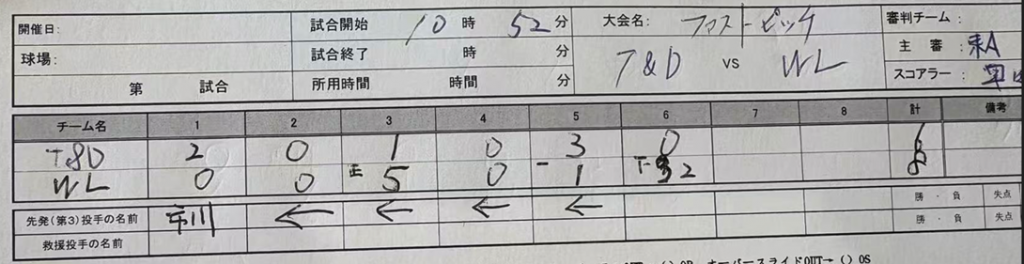 開催日: 試合開始 10 時 52 分 大会名: ファストピッチ 審判チーム:
球場: 試合終了 時 分 T&D vs WL 主 審:
第 試合 所用時間 時間 分 スコアラー:
チーム名 1 2 3 4 5 6 7 8 計 備考
T&D 2 0 1 0 3 0 6
WL 0 0 5 0 1 2 8
先発(第3)投手の名前 市川 ← ← ← ← 勝 ・ 負 失点
救援投手の名前 勝 ・ 負 失点
オーバースライドOUT→ ()OS